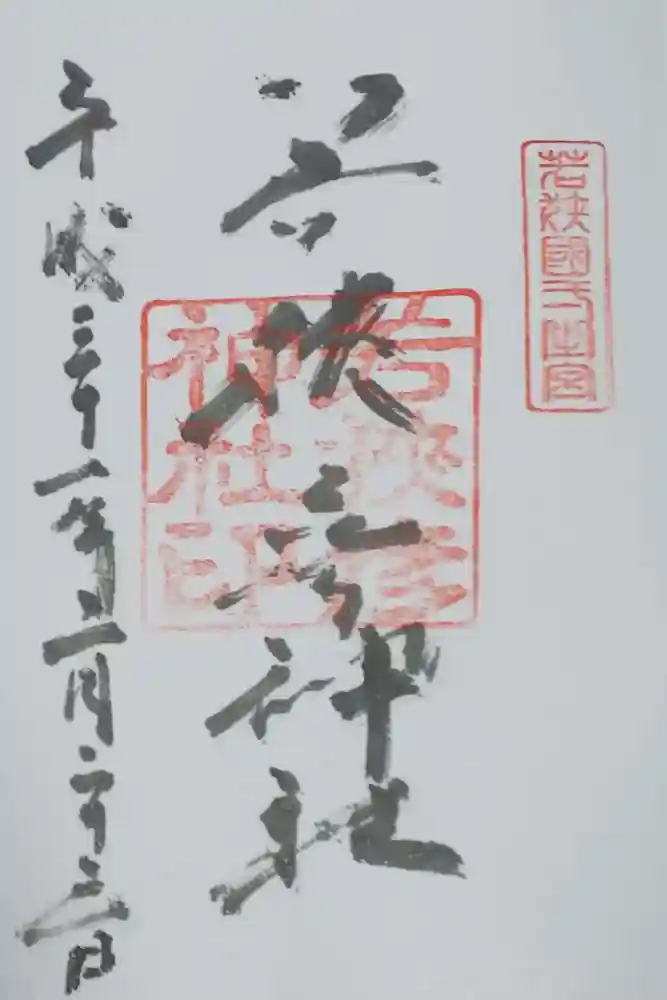 若狹國一之宮
若狭彦
神社印
若狭彦神社
平成三十一年二月二十三日